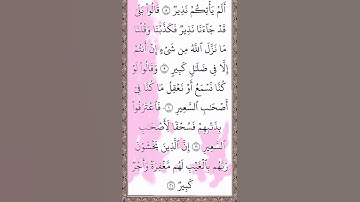 أَلَمْ يَأْتِكُمْ نَذِيرٌ ٨ قَالُوا۟ بَلَىٰ
قَدْ جَآءَنَا نَذِيرٌ فَكَذَّبْنَا وَقُلْنَا
مَا نَزَّلَ ٱللَّهُ مِن شَىْءٍ إِنْ أَنتُمْ
إِلَّا فِى ضَلَٰلٍ كَبِيرٍ ٩ وَقَالُوا۟ لَوْ
كُنَّا نَسْمَعُ أَوْ نَعْقِلُ مَا كُنَّا فِىٓ
أَصْحَٰبِ ٱلسَّعِيرِ ١٠ فَٱعْتَرَفُوا۟
بِذَنۢبِهِمْ فَسُحْقًا لِّأَصْحَٰبِ
ٱلسَّعِيرِ ١١ إِنَّ ٱلَّذِينَ يَخْشَوْنَ
رَبَّهُم بِٱلْغَيْبِ لَهُم مَّغْفِرَةٌ وَأَجْرٌ
كَبِيرٌ ١٢